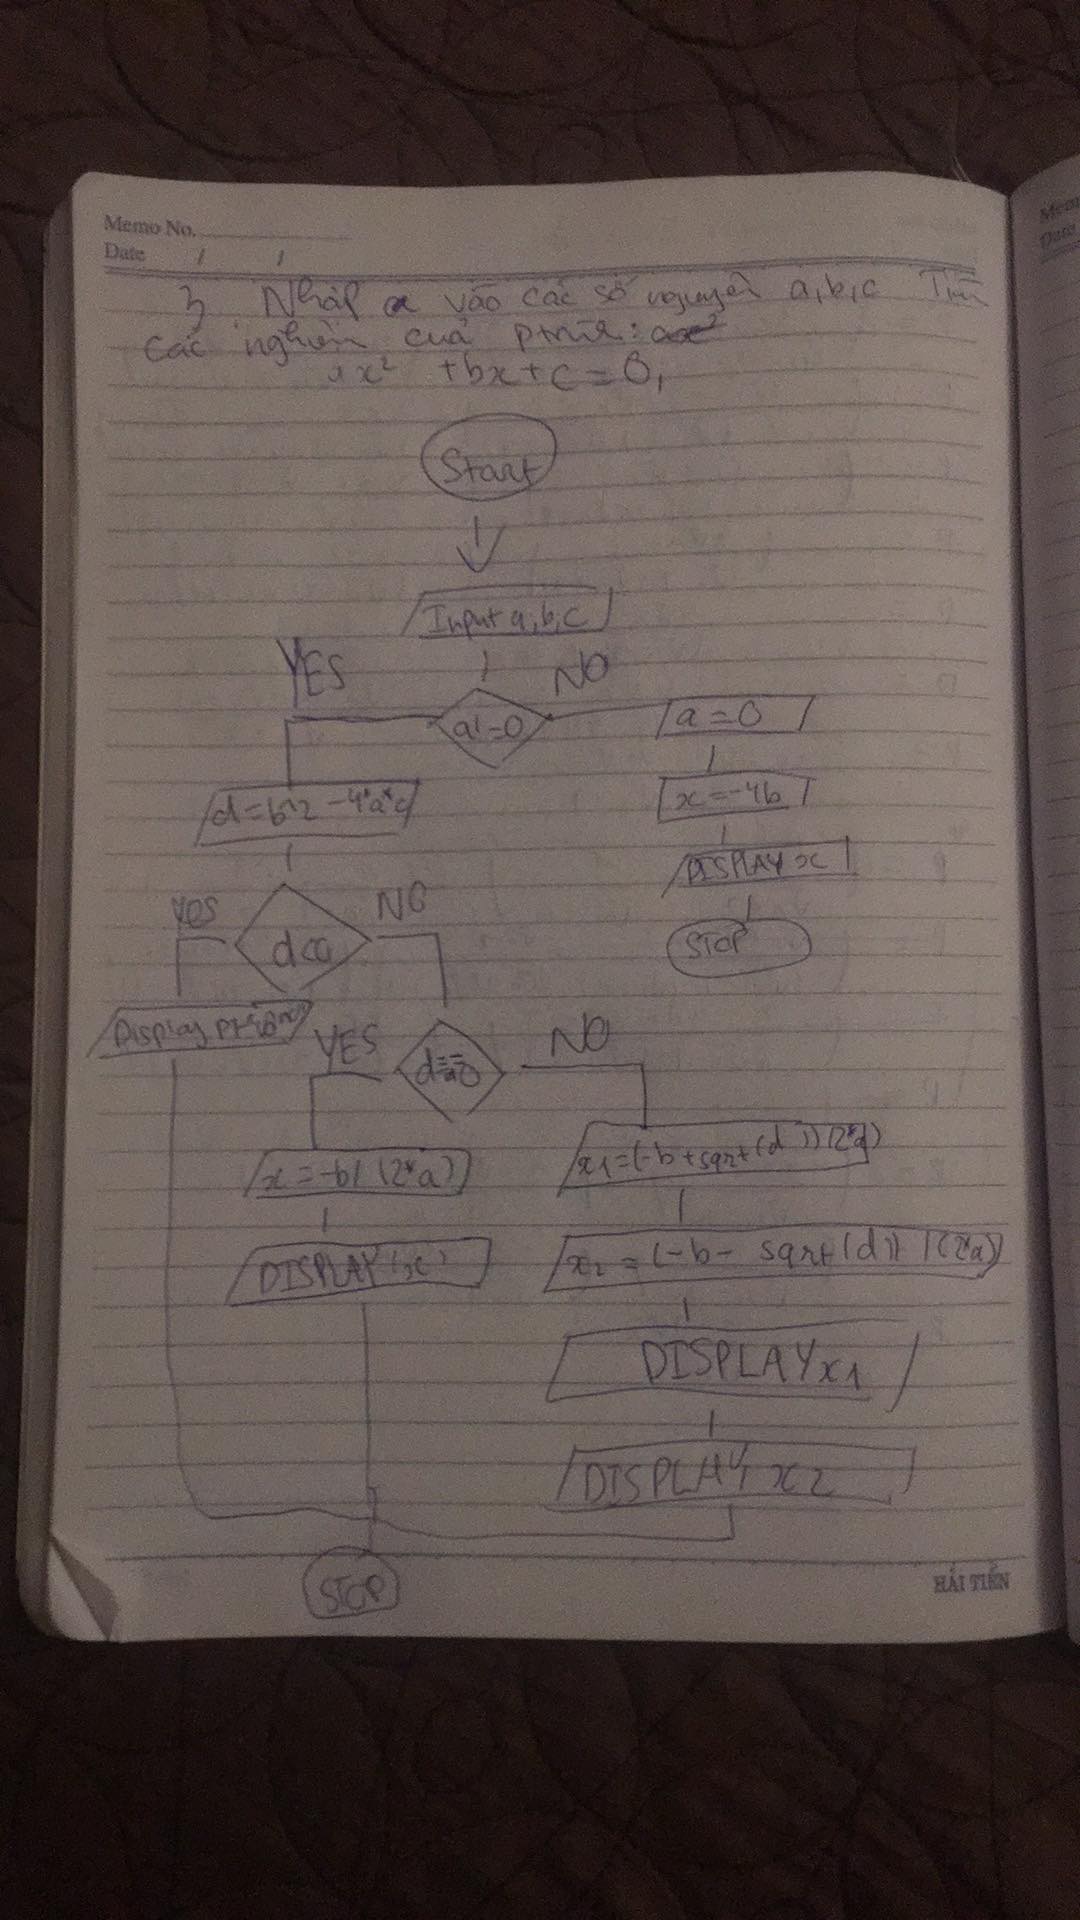 Memo No.
Date / /
3 Nhập a vào các số nguyên a,b,c Tìm
các nghiệm của ptrình: ax²
ax² +bx+c=0,
Start
Input a,b,c
YES
NO
a!=0
a=0
d=b^2-4*a*c
x=-4b
DISPLAY x
STOP
YES
NO
Display
YES
NO
x=-b/(2*a)
x1=(-b+sqrt(d))
x2=(-b-sqrt(d))/(2*a)
DISPLAY (x)
DISPLAY x1
DISPLAY x2
STOP
HẢI TIẾN